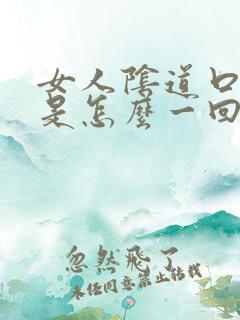 女人陰道口
是怎麼一回
忽然飛了
未经同意禁止转载